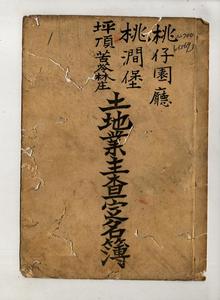 桃仔園廳
桃澗堡
坪頂苦苓林庄
土地業主查定名簿